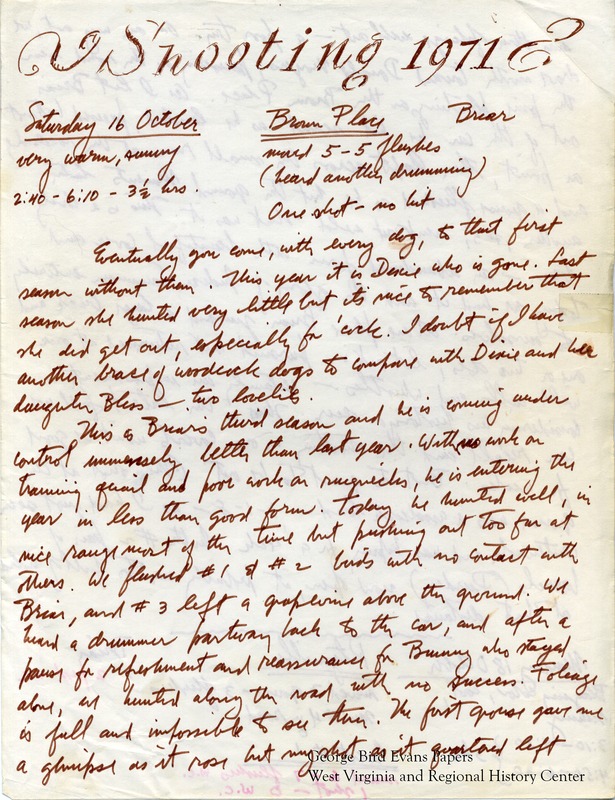 Shooting 1971
Saturday 16 October Brown Place Briar
very warm, sunny moved 5 - 5 flushes
2:40 - 6:10 - 3½ hrs. (heard another drumming)
One shot - no hit
Eventually you come, with every dog, to that first
season without them. This year it is Dixie who is gone. Last
season she hunted very little but it's nice to remember that
she did get out, especially for 'cock. I doubt if I have
another brace of woodcock dogs to compare with Dixie and her
daughter Bliss — two lovelies.
This is Briar's third season and he is coming under
control immensely better than last year. With no work on
training quail and poor work on ringnecks, he is entering the
year in less than good form. Today he hunted well, in
nice range most of the time but pushing out too far at
others. We flushed #1 & #2 birds with no contact with
Briar, and #3 left a grapevine above the ground. We
heard a drummer partway back to the car, and after a
pause for refreshment and reassurance for Bunny who stayed
alone, we hunted along the road with no success. Foliage
is full and impossible to see thru. The first grouse gave me
a glimpse as it rose but my shot as it quartered left
George Bird Evans Papers
West Virginia and Regional History Center